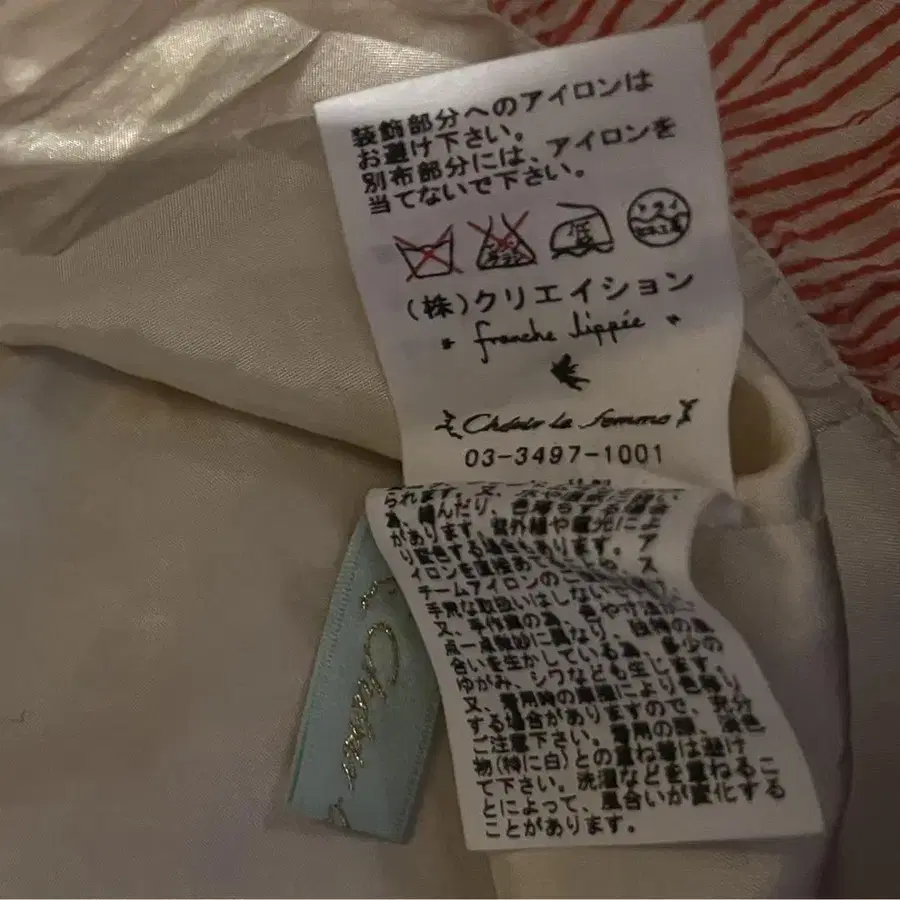 装飾部分へのアイロンは
お避け下さい。
別布部分には、アイロンを
当てないで下さい。
エンソ
サラシ
低
ドライ
セキユ系
(株)クリエイション
franche lippée
Chérir la femme
03-3497-1001
られます。又、水や
為、縮んだり、色落ちする場合
があります。紫外線や蛍光によ
り変色する場合もあります。ア
イロンを直接あて
チームアイロンのご使用
手荒な取扱いはしないで
又、手作業の為、色や寸法が
点一点微妙に異なり、独特の風
合いを生かしている為、多少の
ゆがみ、シワなども生じます。
又、着用時の摩擦により色移り
する場合がありますので、充分
ご注意下さい。着用の際、淡色
物(特に白)との重ね着は避け
て下さい。洗濯などを重ねるこ
とによって、風合いが変化する
ことがあります。
Chérir